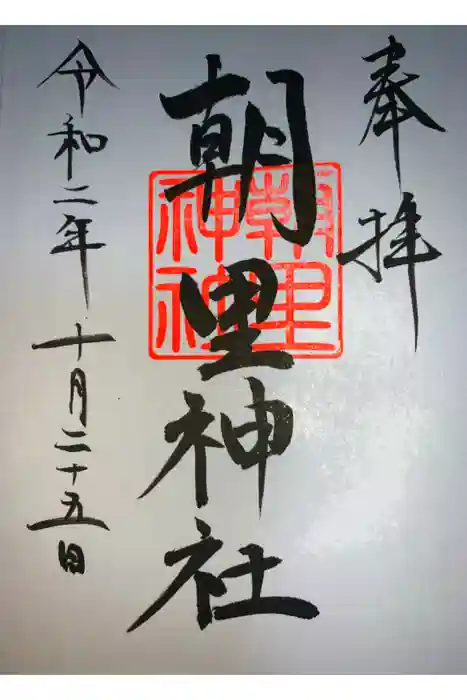 奉拝
朝里神社
朝里
神社
令和二年十月二十五日